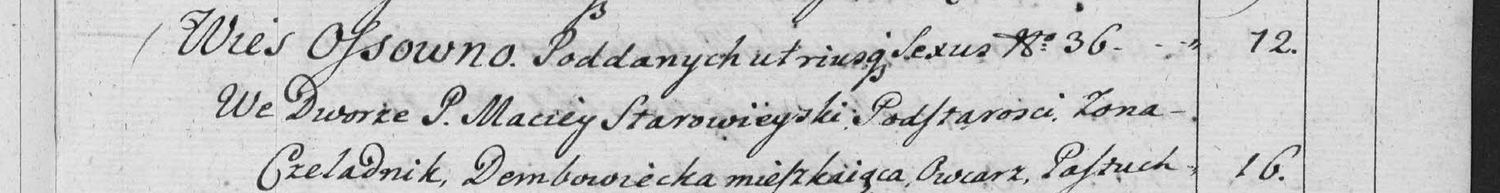 Wies Ossowno. Poddanych utriusq Sexus No 36. - - " 12.
We Dworze P. Maciey Starowieyski, Podstarosci, Zona -
Czeladnik, Dembowiecka mieszkaiąca, Owcarz, Pastuch - 16.